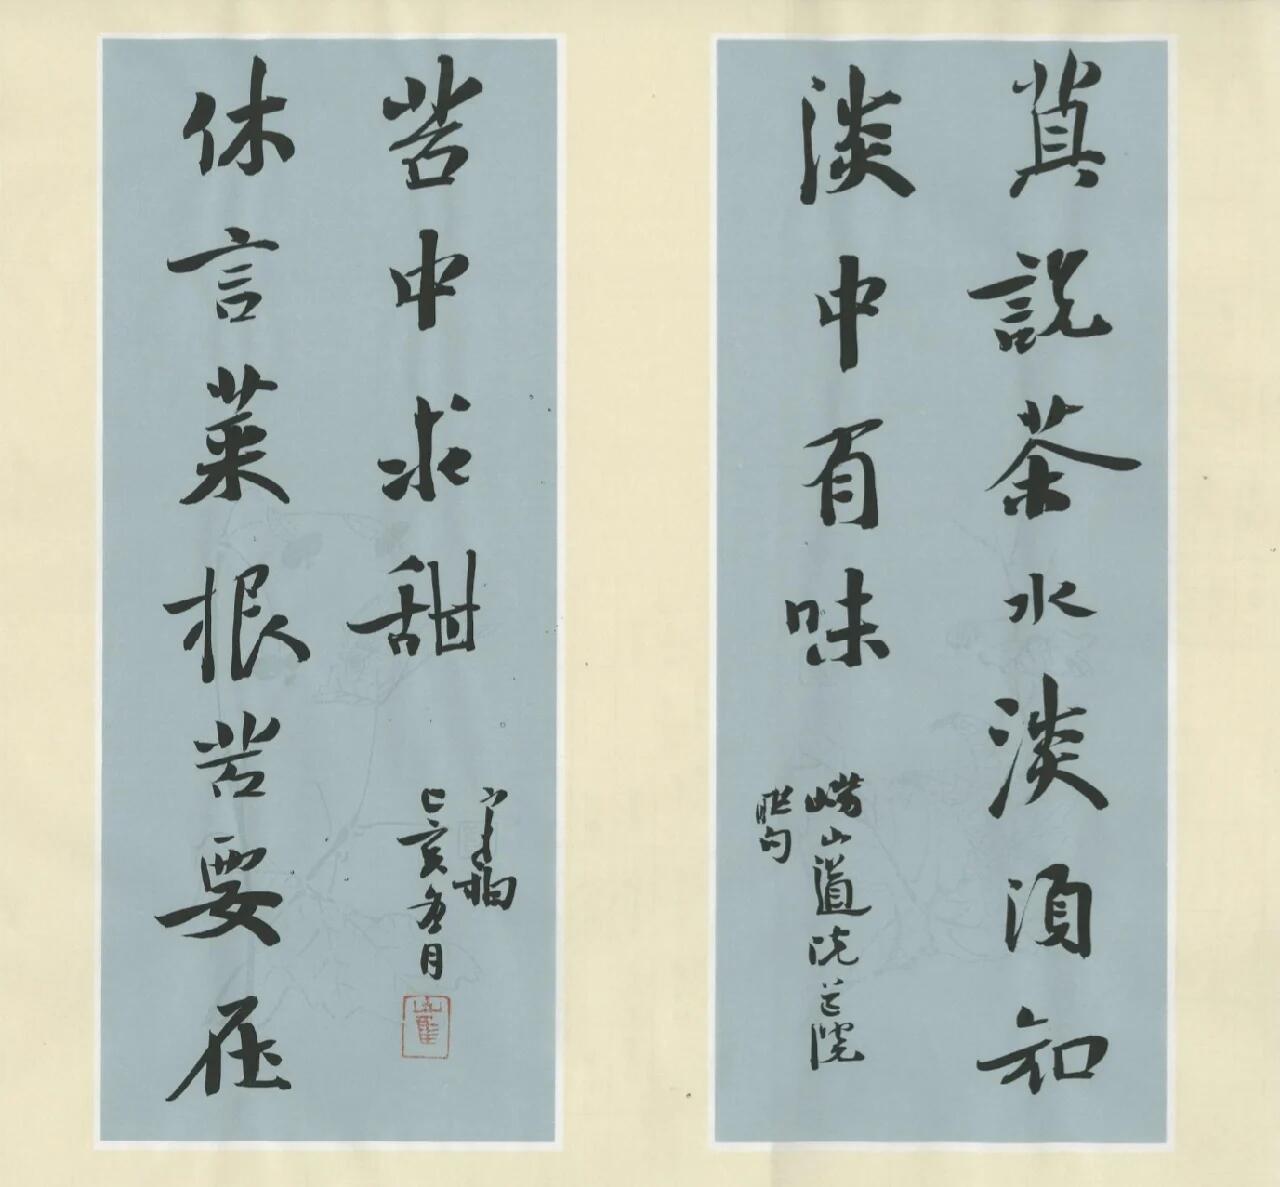 莫說茶水淡須知
淡中有味
嶗山道
联句
休言菜根苦要在
苦中求甜
己亥 月
崔